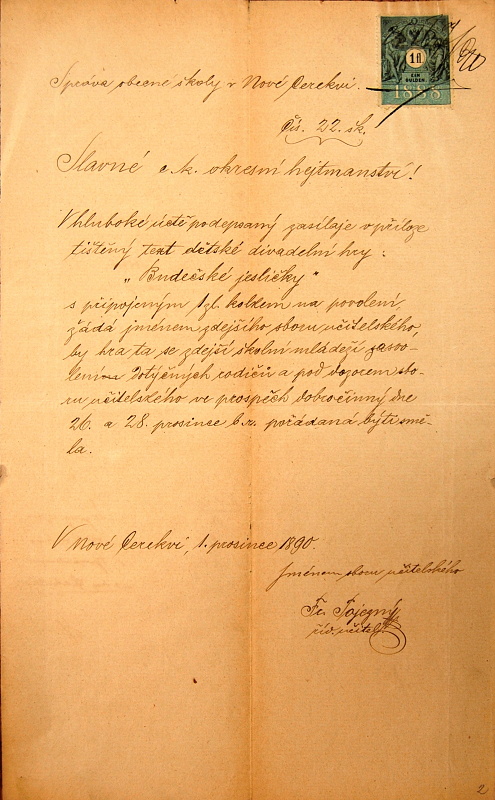 1 fl
EIN
GULDEN
1888
Správa obecné školy v Nové Cerekvi.
Čís. 22. šk.
Slavné c. k. okresní hejtmanství!
V hluboké úctě podepsaný zasílaje v příloze
tištěný text dětské divadelní hry:
„Budečské jesličky"
s připojeným 1 zl. kolkem na povolení
žádá jménem zdejšího sboru učitelského,
by hra ta se zdejší školní mládeží za svo-
lení dotyčných rodičův a pod dozorem sbo-
ru učitelského ve prospěch dobročinný dne
26. a 28. prosince b. r. pořádána býti smě-
la.
V Nové Cerekvi, 1. prosince 1890.
Jménem sboru učitelského
Fr.
říd. učitel.
2